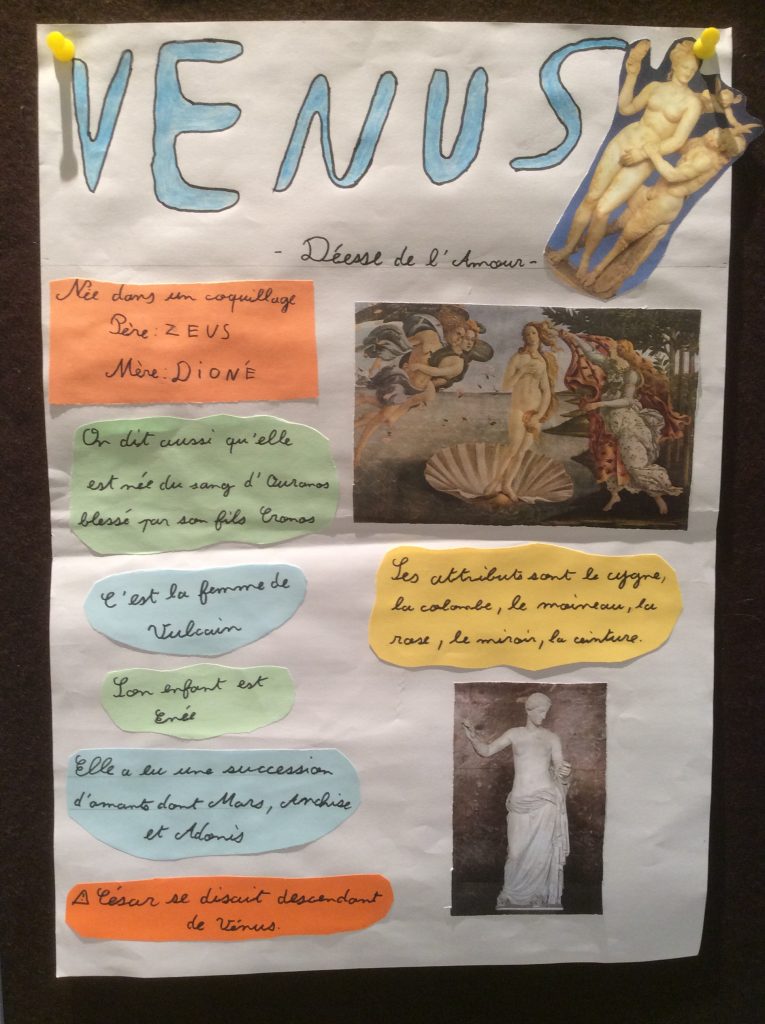 VENUS
- Déesse de l'Amour -
Née dans un coquillage
Père : ZEUS
Mère : DIONÉ
On dit aussi qu'elle
est née du sang d'Ouranos
blessé par son fils Cronos
C'est la femme de
Vulcain
Son enfant est
Enée
Elle a eu une succession
d'amants dont Mars, Anchise
et Adonis
⚠ César se disait descendant
de Vénus.
Ses attributs sont le cygne,
la colombe, le moineau, la
rose, le miroir, la ceinture.